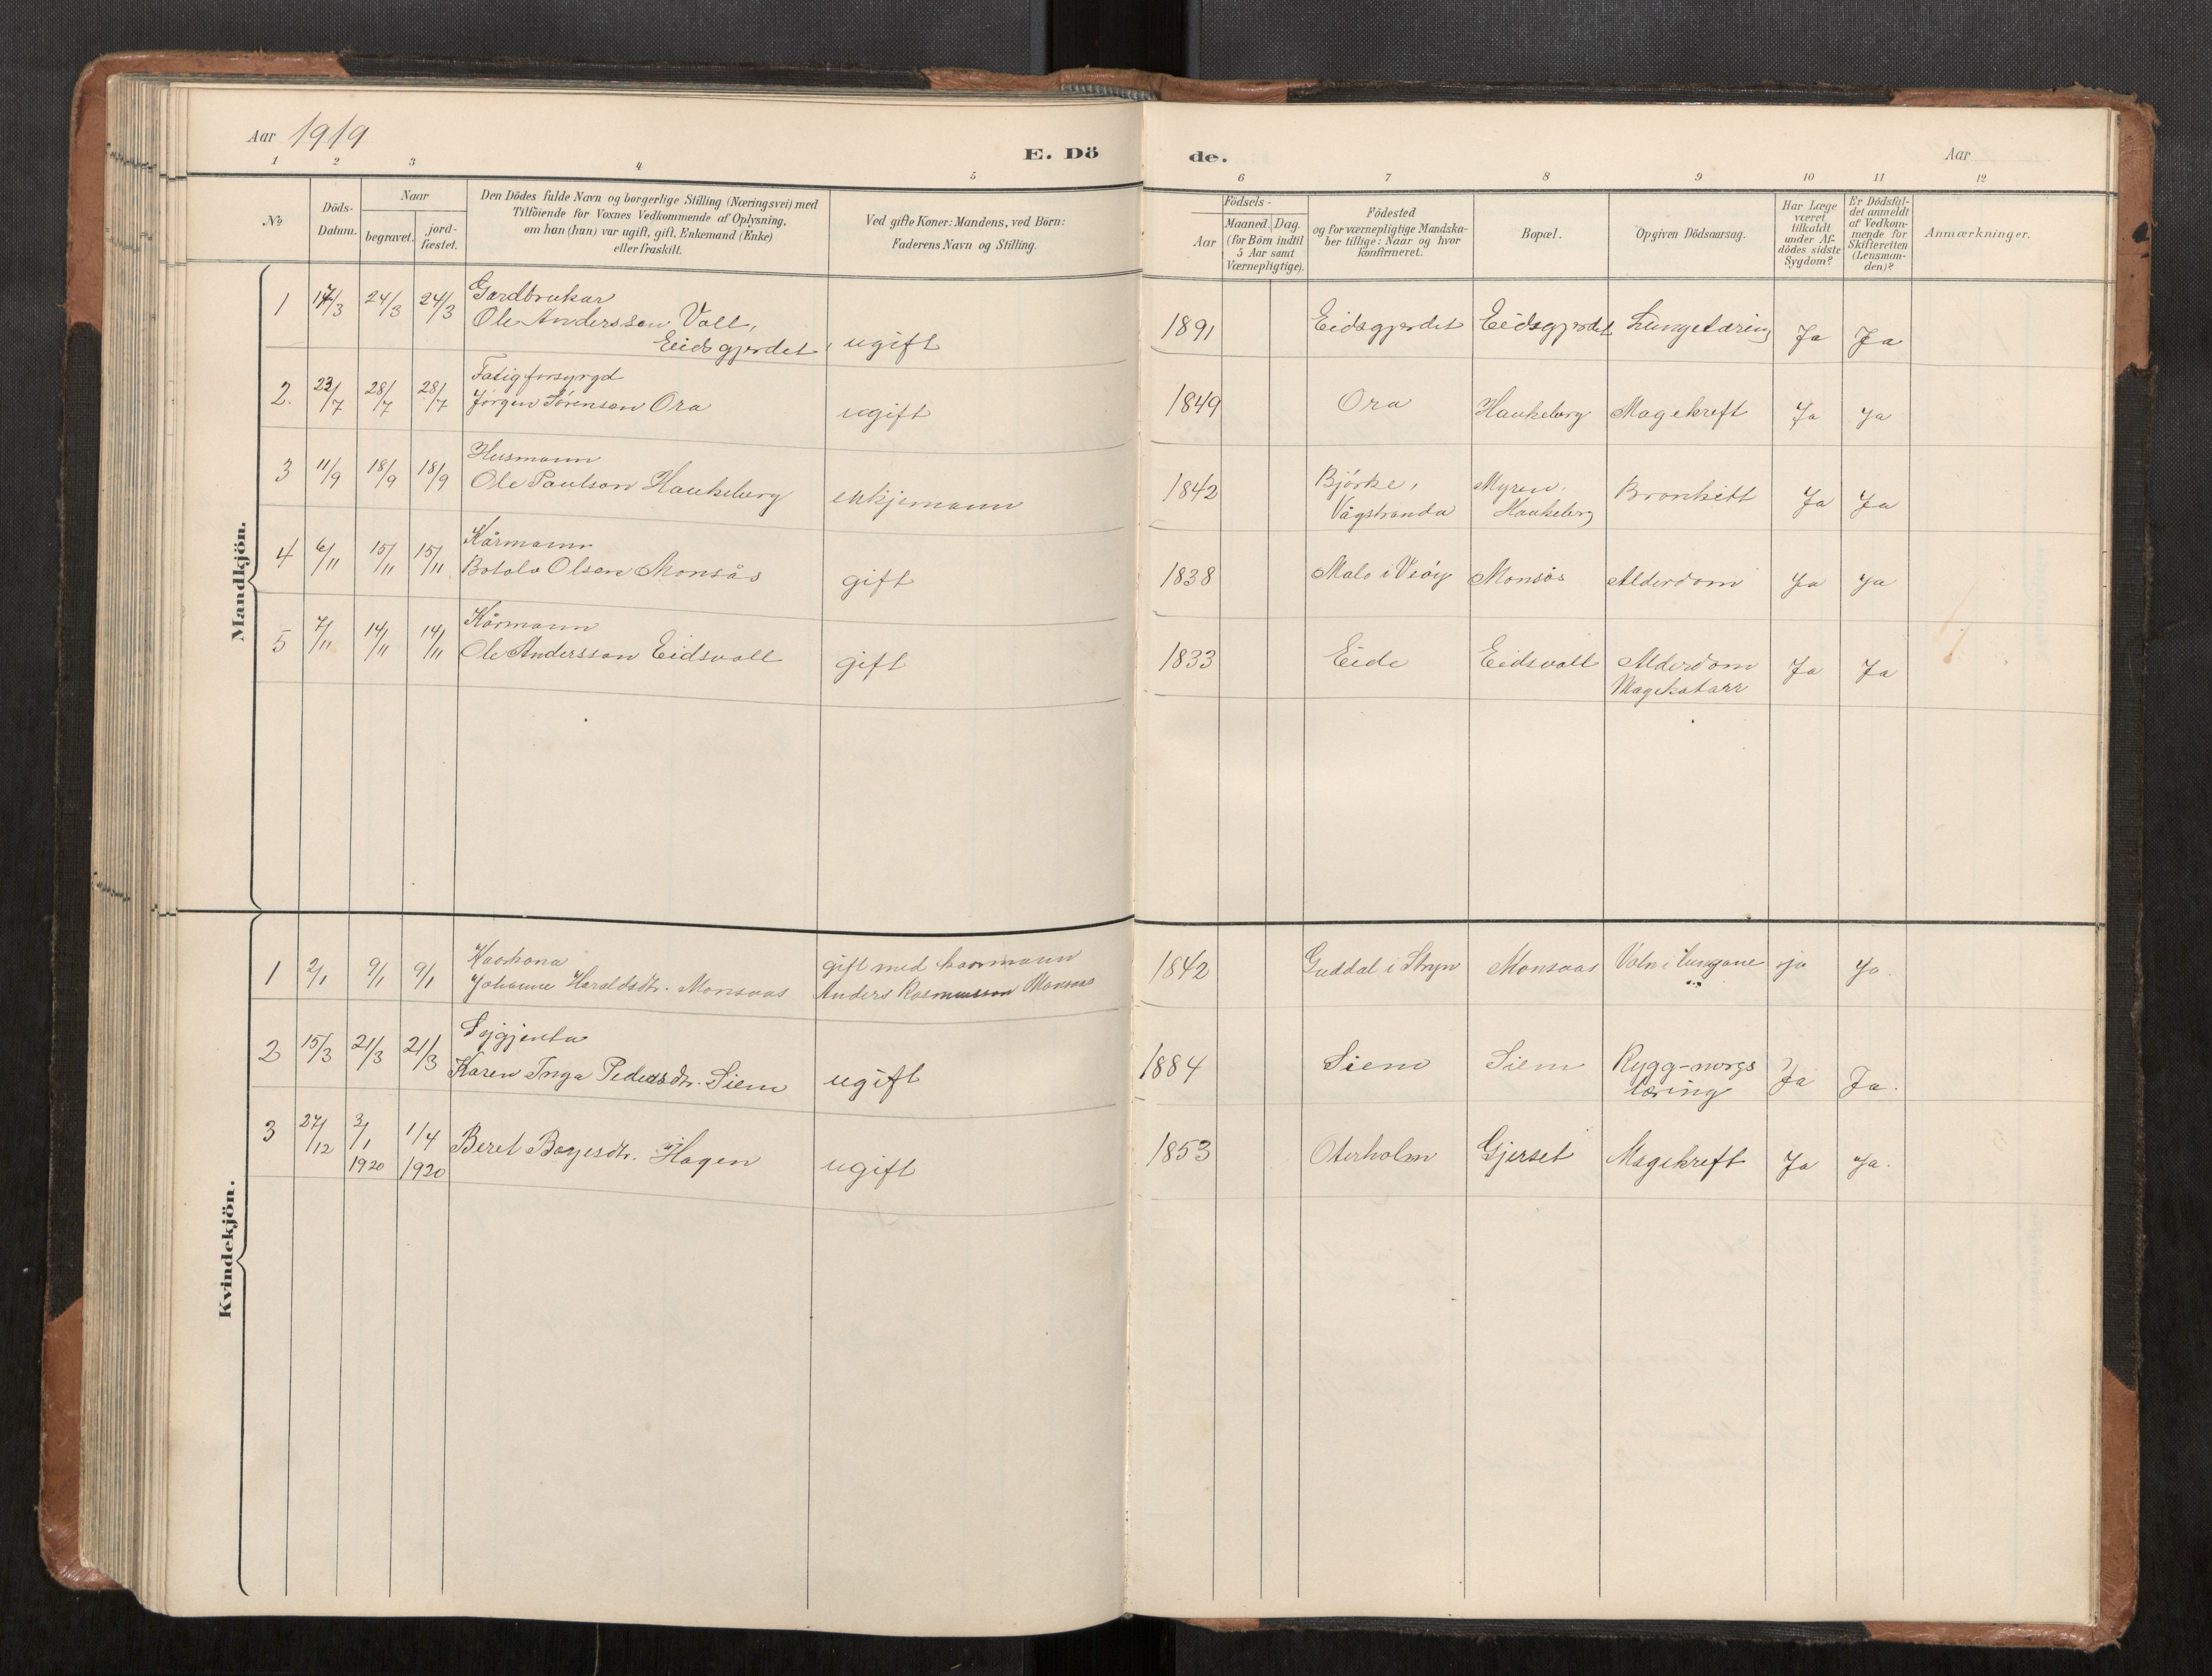 Aar 1919
E. Dö
de.
Aar
1 2 3 4 5 6 7 8 9 10 11 12
No
Döds-
Datum.
Naar
begravet.
jord-
fæstet.
Den Dödes fulde Navn og borgerlige Stilling (Næringsvei) med
Tilföiende for Voxnes Vedkommende af Oplysning,
om han (hun) var ugift, gift, Enkemand (Enke)
eller fraskilt.
Ved gifte Koner: Mandens, ved Börn:
Faderens Navn og Stilling.
Födsels-
Aar
Maaned. Dag.
(for Börn indtil
5 Aar samt
Værnepligtige).
Födested
og for værnepligtige Mandska-
ber tillige: Naar og hvor
konfirmeret.
Bopæl.
Opgiven Dödsaarsag.
Har Læge
været
tilkaldt
under Af-
dödes sidste
Sygdom?
Er Dödsfal-
det anmeldt
af Vedkom-
mende for
Skifteretten
(Lensman-
den)?
Anmærkninger.
Mandkjön.
1 17/3 24/3 24/3 Gardbrukar
Ole Andersson Voll,
Eidsgjerdet, ugift 1891 Eidsgjerdet Eidsgjerdet Lungetæring Ja Ja
2. 23/7 28/7 28/7 Fatigforsyrgd
Jørgen Sørenson Ora ugift 1849 Ora Haukeberg Magekreft Ja Ja
3 11/9 18/9 18/9 Husmann
Ole Paulson Haukeberg enkjemann 1842 Bjørke, Vågstranda Myren Haukeberg Bronkitt Ja Ja
4 6/11 15/11 15/11 Kårmann
Botolv Olsen Monsås gift 1838 Malo i Veøy Monsås Alderdom Ja Ja
5 7/11 14/11 14/11 Kårmann
Ole Andersson Eidsvoll gift 1833 Eide Eidsvoll Alderdom Magekatarr Ja Ja
Kvindekjön.
1 2/1 9/1 9/1 Kaarkona
Johanne Haraldsdtr. Monsaas gift med kaarmann
Anders Rasmusson Monsaas 1842 Guddal i Stryn Monsaas Vatn i lungane ja Ja
2 15/3 21/3 21/3 Sygjenta
Karen Inga Pedersdtr. Siem ugift 1884 Siem Siem Rygg-mergs
tæring Ja Ja.
3 27/12 3/1 1920 1/4 1920 Beret Bøyesdtr. Hagen ugift 1853 Oterholm Gjerset Magekreft Ja Ja.